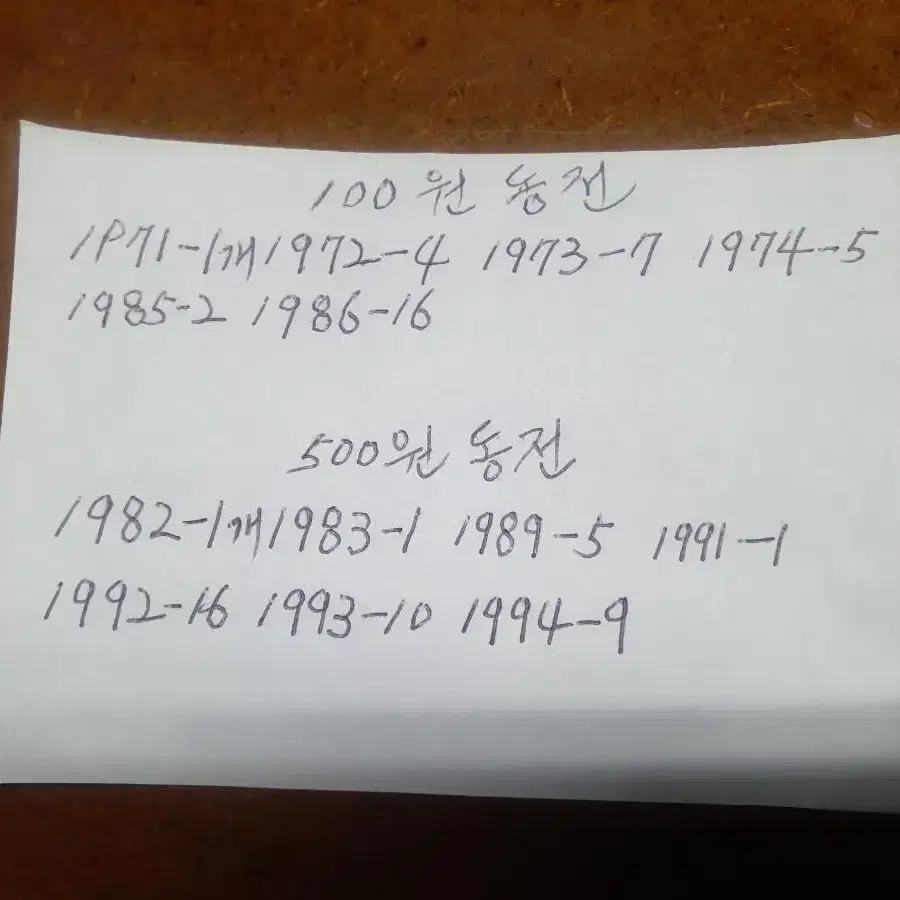 100원 동전
1971-1개 1972-4 1973-7 1974-5
1985-2 1986-16
500원 동전
1982-1개 1983-1 1989-5 1991-1
1992-16 1993-10 1994-9